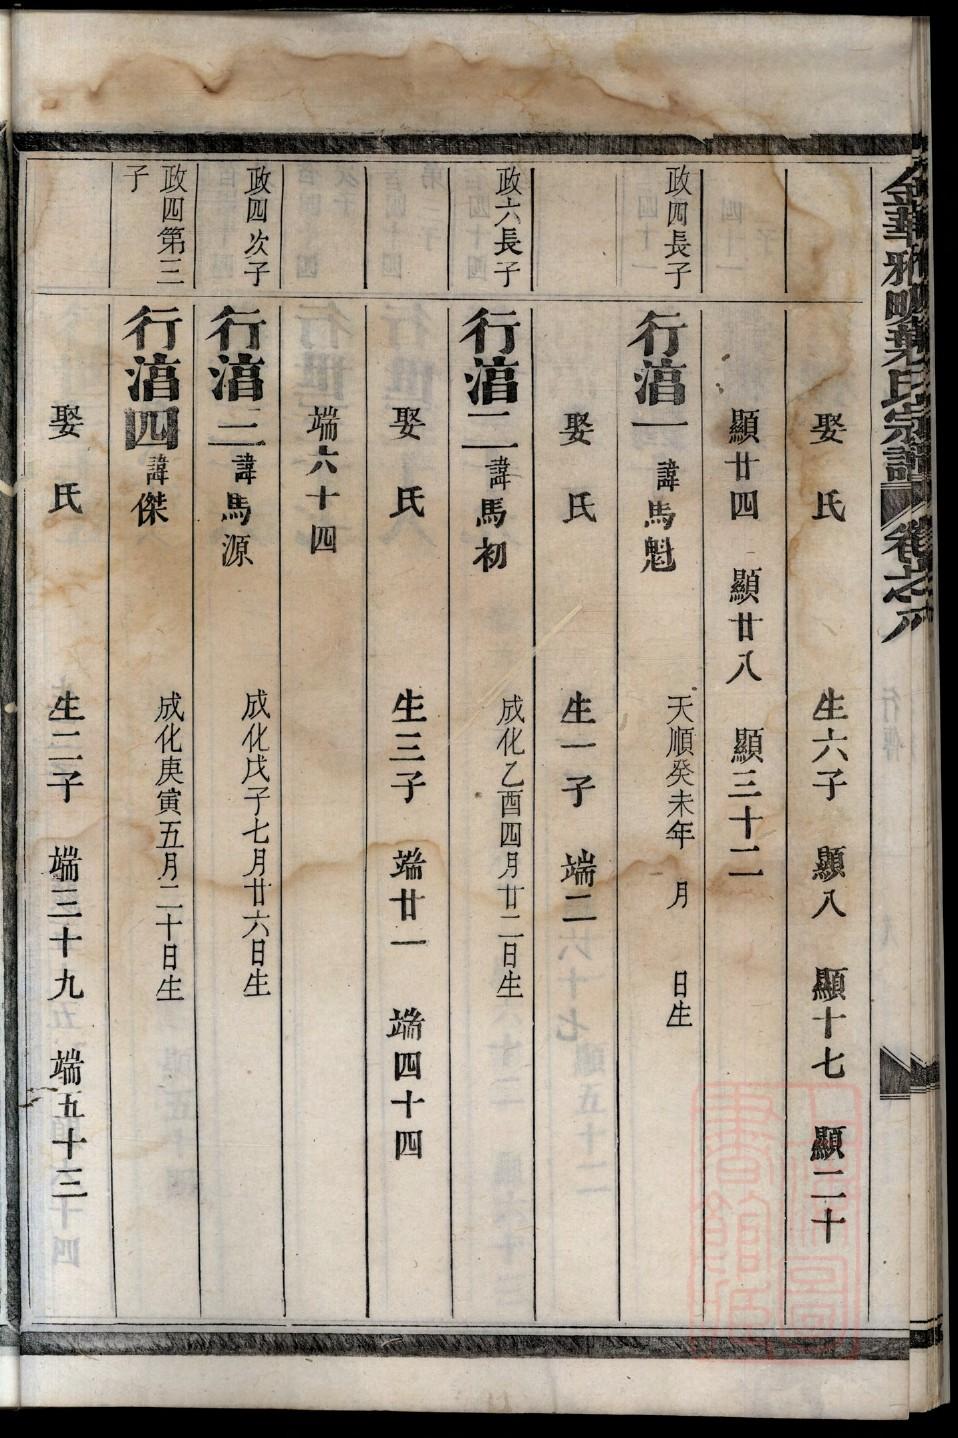 娶氏 生六子 顯八 顯十七 顯二十
顯廿四 顯廿八 顯三十二
政四長子
行湇一 諱馬魁 天順癸未年 月 日生
娶氏 生一子 端二
政六長子
行湇二 諱馬初 成化乙酉四月廿二日生
娶氏 生三子 端廿一 端四十四
端六十四
政四次子
行湇三 諱馬源 成化戊子七月廿六日生
政四第三子
行湇四 諱傑 成化庚寅五月二十日生
娶氏 生二子 端三十九 端五十三